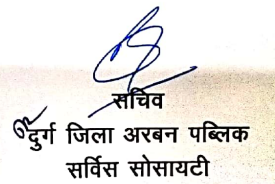 सचिव
दुर्ग जिला अरबन पब्लिक
सर्विस सोसायटी